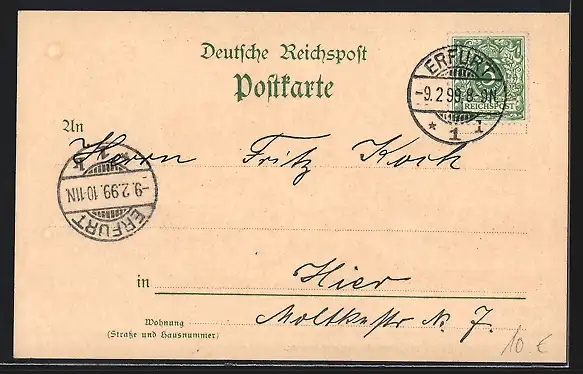 Deutsche Reichspost
Postkarte
ERFURT
-9.2.99.8-9N.
* 1 I
REICHSPOST
An
Herrn Fritz Koch
-9.2.99.10-11N
ERFURT
in Hier
Wohnung
(Straße und Hausnummer)
Moltkestr N. 7.
10 €